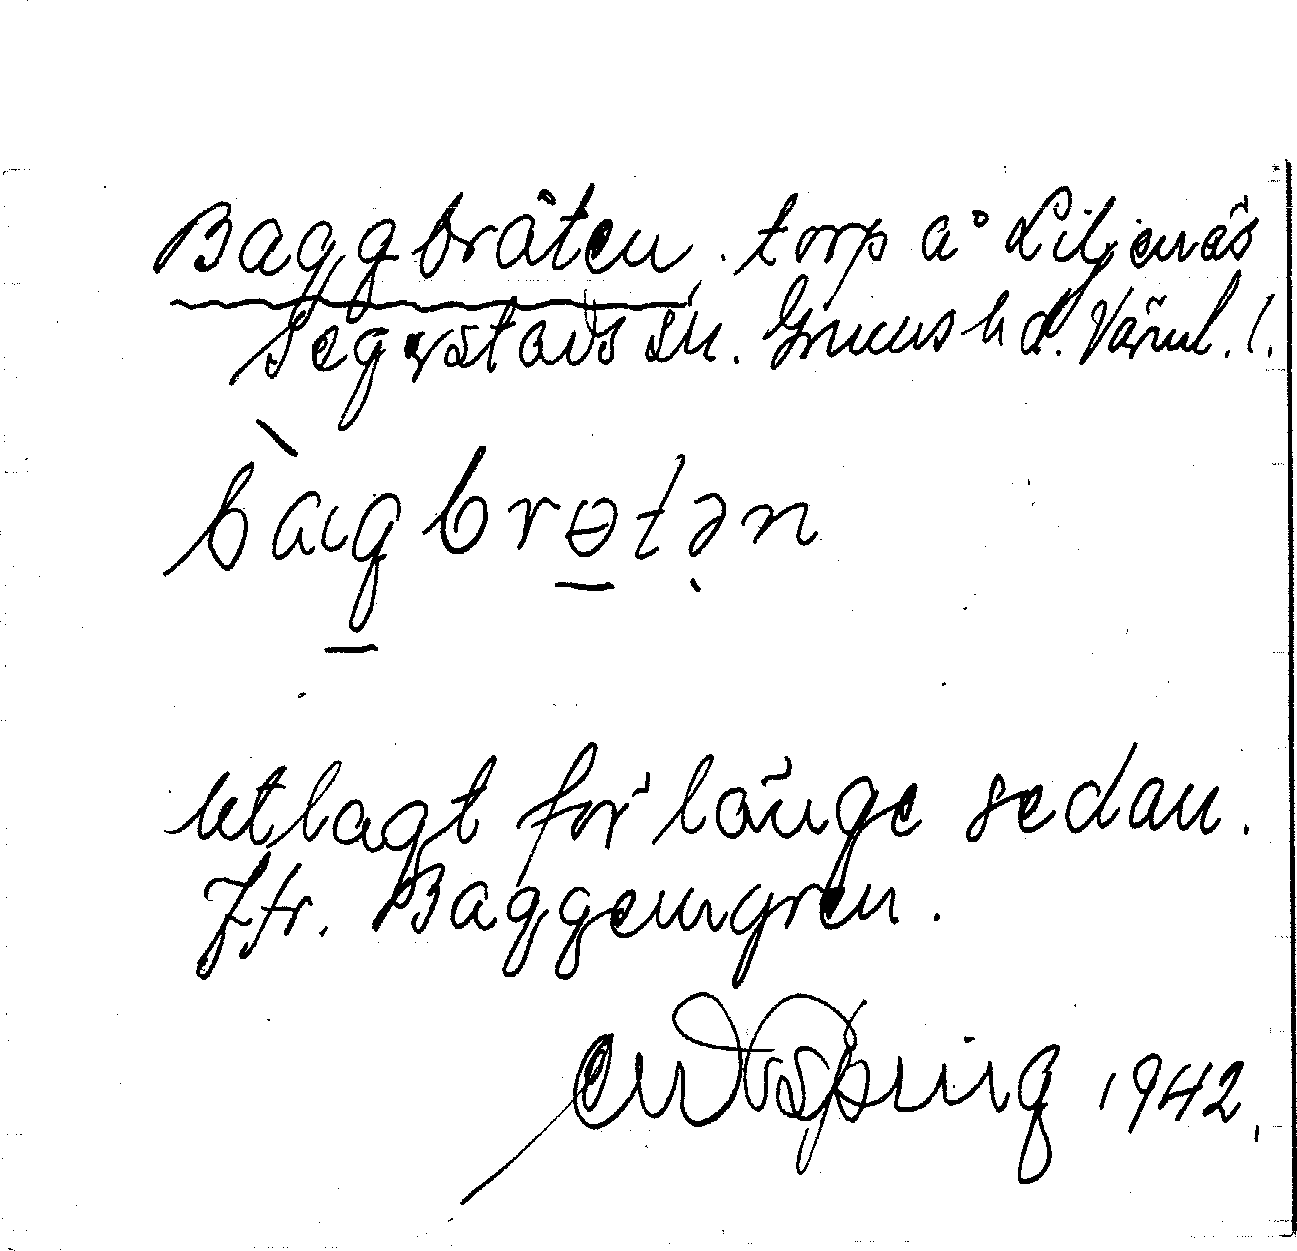 Baggbråten, torp å Liljenäs
Segerstads sn. Grums hd. Värml. l.
bàgbrɵtən
Utlagt för länge sedan.
Jfr. Baggemyren.
1942.